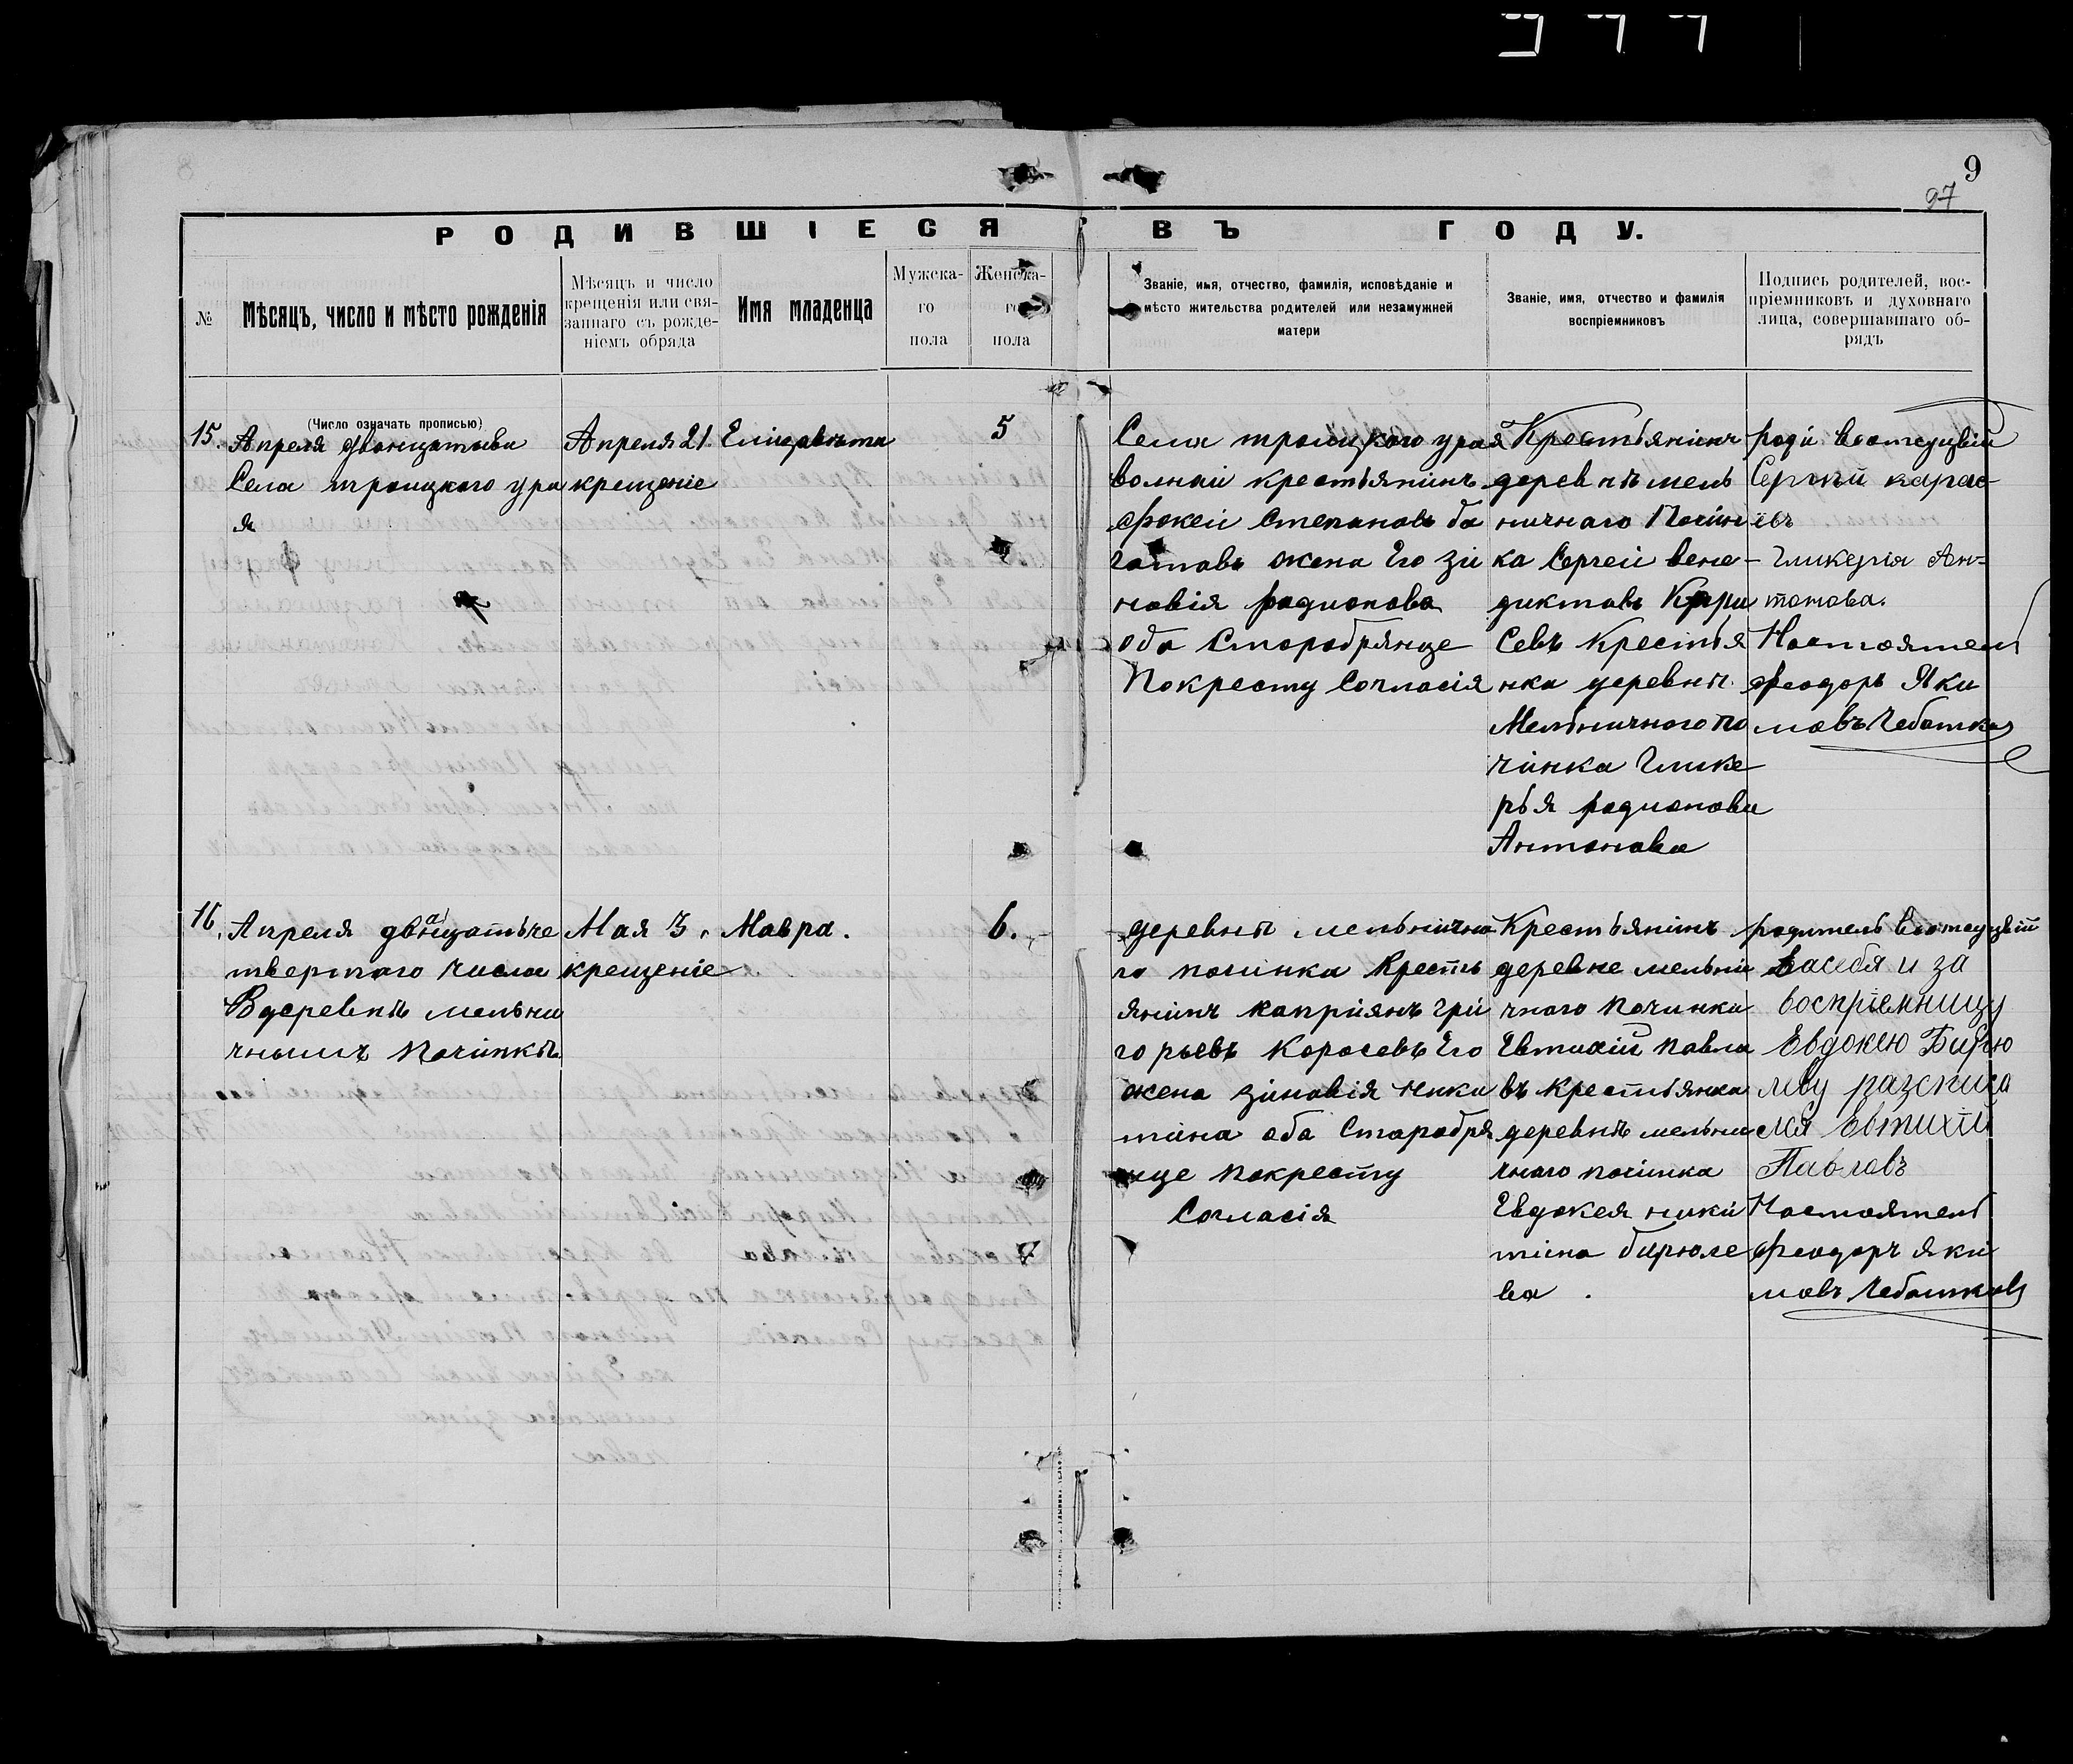 9
97
РОДИВШІЕСЯ ВЪ ГОДУ.
№
Мѣсяцъ, число и мѣсто рожденія
Мѣсяцъ и число
крещенія или свя-
заннаго съ рожде-
ніемъ обряда
Имя младенца
Мужска-
го
пола
Женска-
го
пола
Званіе, имя, отчество, фамилія, исповѣданіе и
мѣсто жительства родителей или незамужней
матери
Званіе, имя, отчество и фамилія
воспріемниковъ
Подпись родителей, вос-
пріемниковъ и духовнаго
лица, совершавшаго об-
рядъ
(Число означать прописью)
15.
Апреля
Села троицкого ура
я
Апреля 21.
крещеніе
Елизавѣта
5
Села троицкого урая
волнаи крестьянинъ
фокеи Степановъ бо
гатовъ жена Его Зи
новія родионова
оба Старобрянце
Покресту Согласія
Крестьянинъ
деревнѣ мель
ничнаго Почин
ка Сергеи вене-
диктовъ
Севъ Крестья
нка деревнѣ
Мельничного по
чинка Глике
рья родионова
Антонова
Сергѣй карас-
ёвъ
Гликерія Ан-
тонова.
Настоятель
феодоръ Яки
мовъ Чеботков
16.
Апреля дванцатьче
твертаго числа
В деревнѣ мельни
чномъ Починкѣ
Мая 3.
крещеніе
Мавра.
6.
деревнѣ мельнично
го починка Кресть
янинъ каприянъ Гри
горьевъ Коросевъ Его
жена Зиновія ники
тина оба Старобря
нце Покресту
Согласія
Крестьянинъ
деревне мельни
чного Починка
Евтихій павло
въ крестьянка
деревнѣ мельни
чнаго починка
Евдокея ники
тина бирюле
ва.
родитель
Засебя и за
воспріемницу
Евдокею Бирю
леву разсписа
лся Евтихій
Павловъ
Настоятель
феодоръ Яки
мовъ Чеботков